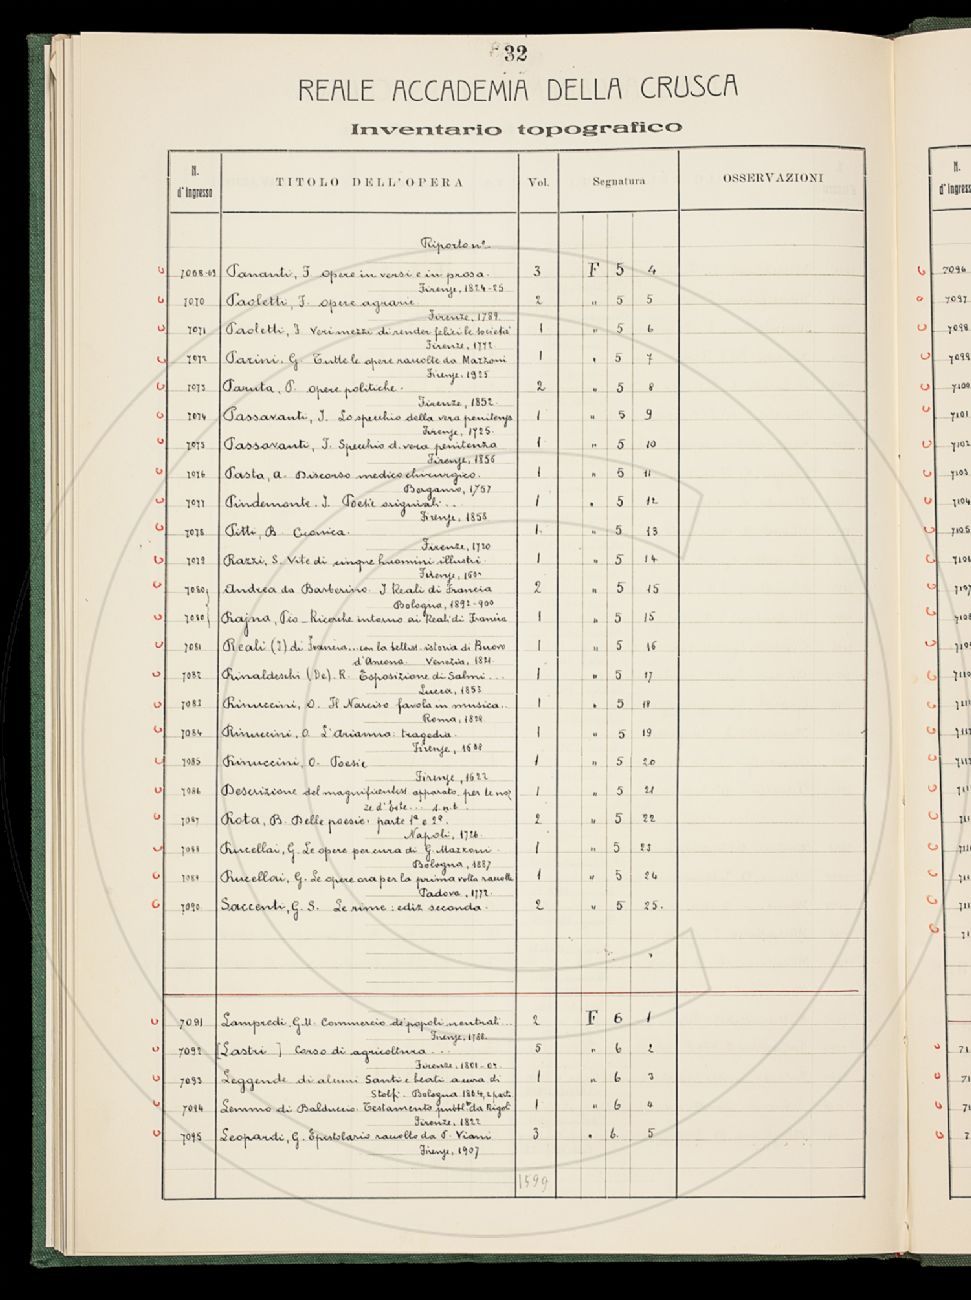 32
REALE ACCADEMIA DELLA CRUSCA
Inventario topografico
N. d'Ingresso TITOLO DELL'OPERA Vol. Segnatura OSSERVAZIONI
Riporto n°
7068-69 Pananti, F. opere in versi e in prosa. 3 F 5 4
Firenze, 1824-25
7070 Paoletti, F. opere agrarie. 2 " 5 5
Firenze, 1789.
7071 Paoletti, F. Veri mezzi di render felici le società 1 " 5 6
Firenze, 1772
7072 Parini, G. Tutte le opere raccolte da Mazzoni 1 " 5 7
Firenze, 1925
7073 Paruta, P. opere politiche. 2 " 5 8
Firenze, 1852.
7074 Passavanti, J. Lo specchio della vera penitenza 1 " 5 9
Firenze, 1725.
7075 Passavanti, J. Specchio d. vera penitenza 1 " 5 10
Firenze, 1856
7076 Pasta, A. Discorso medico chirurgico. 1 " 5 11
Bergamo, 1757
7077 Pindemonte. I. Poesie originali... 1 " 5 12
Firenze, 1858
7078 Pitti, B. Cronica. 1 " 5 13
Firenze, 1720
7079 Razzi, S. Vite di cinque huomini illustri 1 " 5 14
Firenze,
7080 Andrea da Barberino. I Reali di Francia 2 " 5 15
Bologna, 1892-900
7080 Rajna, Pio - Ricerche intorno ai Reali di Francia 1 " 5 15
7081 Reali (I) di Francia... con la belliss. istoria di Buovo 1 " 5 16
d'Antona. Venezia, 1821.
7082 Rinaldeschi (De). R. Esposizione di Salmi... 1 " 5 17
Lucca, 1853
7083 Rinuccini, O. Il Narciso favola in musica.. 1 " 5 18
Roma, 1829
7084 Rinuccini, O. L'Arianna: tragedia. 1 " 5 19
Firenze, 1608
7085 Rinuccini, O. Poesie 1 " 5 20
Firenze, 1622
7086 Descrizione del magnificentiss. apparato. per le noz 1 " 5 21
ze d'Este... s.n.t.
7087 Rota, B. Delle poesie: parte 1ª e 2ª. 2 " 5 22
Napoli, 1726.
7088 Rucellai, G. Le opere per cura di G. Mazzoni. 1 " 5 23
Bologna, 1887
7089 Rucellai, G. Le opere ora per la prima volta raccolte 1 " 5 24
Padova, 1772.
7090 Saccenti, G. S. Le rime: ediz seconda. 2 " 5 25.
7091 Lampredi, G.M. Commercio de' popoli neutrali... 2 F 6 1
Firenze, 1788.
7092 [Lastri ] Corso di agricoltura... 5 " 6 2
Firenze, 1801-03.
7093 Leggende di alcuni Santi e beati a cura di 1 " 6 3
Stolfi. Bologna 1864, 2 parti
7094 Lemmo di Balduccio. Testamento pubbl.to da Rigoli 1 " 6 4
Firenze, 1822
7095 Leopardi, G. Epistolario raccolto da P. Viani 3 " 6. 5
Firenze, 1907
1599
N. d'Ingresso
7096
7097
7098
7099
7100
7101
7102
7103
7104
7105